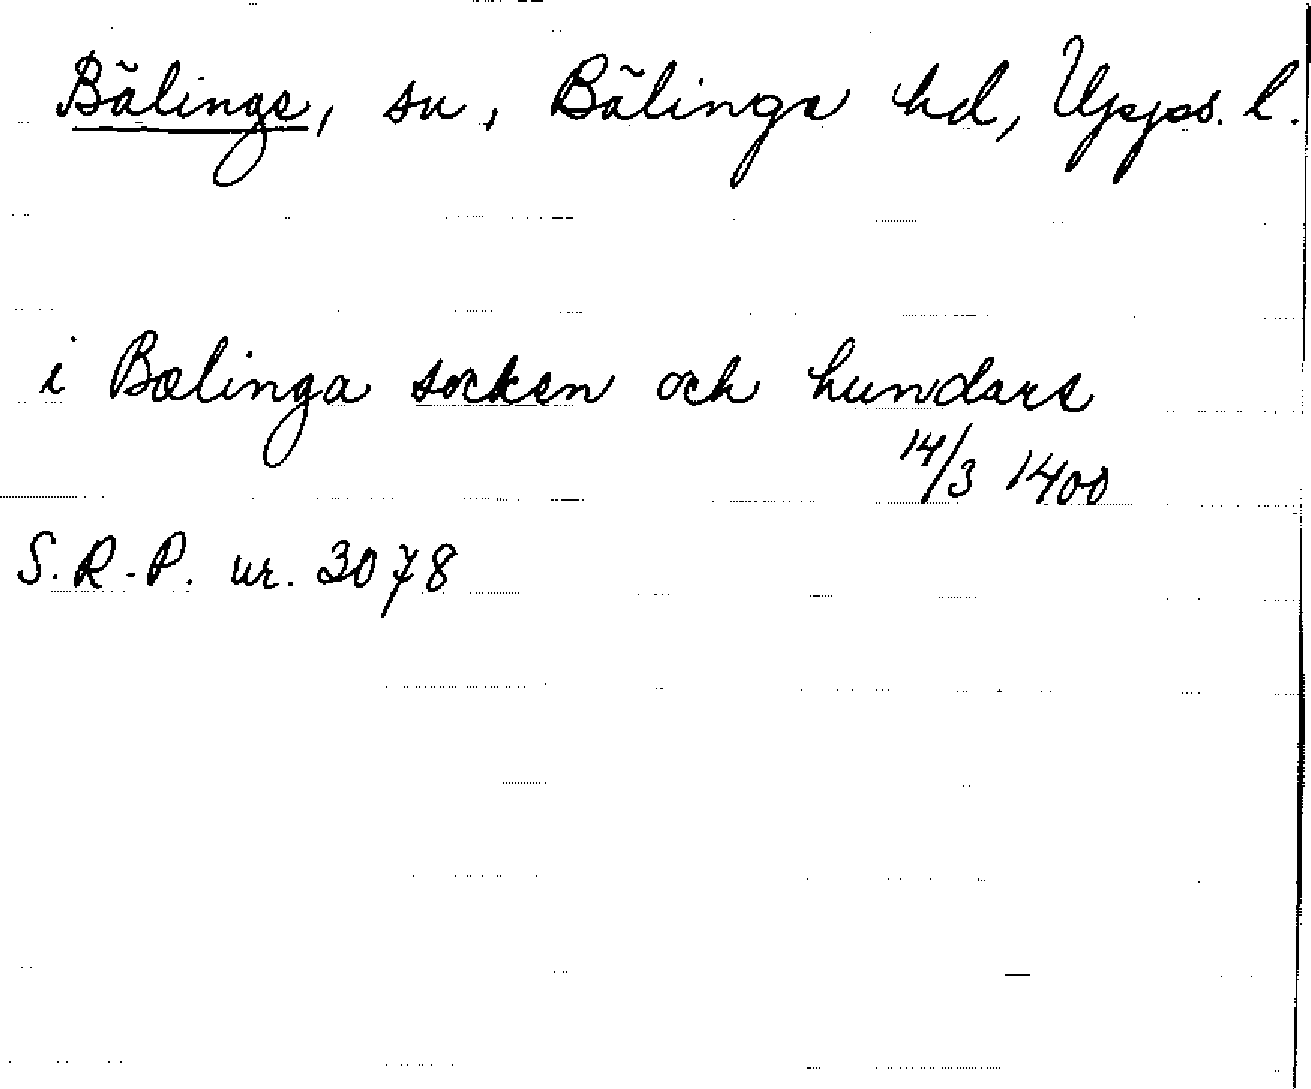 Bälinge, sn, Bälinge hd, Upps. l.
i Bælinga socken och hundare
14/3 1400
S.R.P. nr. 3078